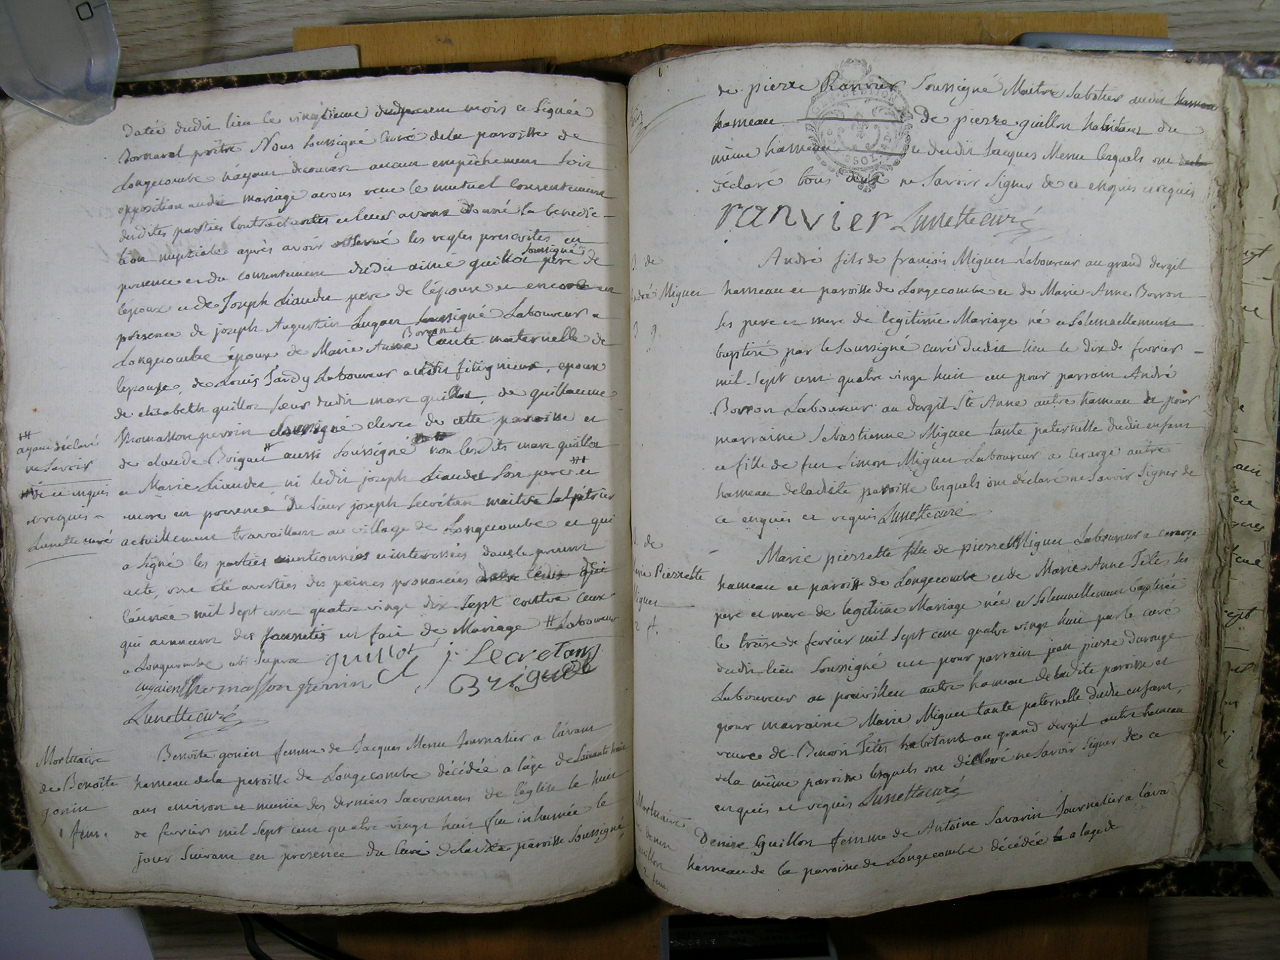 datée dudit lieu le vingtieme du mois et signée
prêtre Nous soussigné curé de la paroisse de
Longecombe n'ayant decouvert aucun empêchement soit
opposition audit mariage avons reçu le mutuel consentement
desdites parties contractantes et leur avons donné la benedic-
tion nuptiale après avoir observé les regles prescrites en
presence et du consentement dudit aimé guillot soussigné pere de
l'epoux et de Joseph Liaudet pere de l'épouse et encore en
presence de joseph Augustin Lugan soussigné Laboureur a
Longecombe époux de Marie Anne Borron tante maternelle de
l'epouse, de Louis Tardy Laboureur audit, epoux
de elizabeth guillot soeur dudit marc guillot, de guillaume
Thomasson perrin soussigné clerc de cette paroisse et
de claude Briguet aussi soussigné non lesdits marc guillot
et Marie Liaudet ni ledit joseph Liaudet son pere
en presence du sieur joseph Secrétan maitre salpétrier
actuellement travaillant au village de Longecombe et qui
a signé les parties mentionnées dans le present
acte, ont été averties des peines prononcées dans l'edit de
l'année mil sept cent quatre vingt dix sept contre ceux
qui arrivent des faussetés en fait de Mariage # Laboureur
a Longecombe ubi supra guillot j. Secretan
Thomasson perrin cl Briguet
Lunette curé
#
ayant déclaré
ne savoir
de ce enquis
et requis
Lunette curé
Mortuaire
de Benoîte
gonin
fem.
Benoîte gonin femme de Jacques Mermet Journalier a lavant
hameau de la paroisse de Longecombe décédée a l'age de soixante huit
ans environ et munie des derniers sacremens de l'église le huit
de fevrier mil sept cent quatre vingt huit fut inhumée le
jour suivant en presence du curé de ladite paroisse soussigné
de pierre Ranvier soussigné Maitre Sabotier audit
hameau de pierre guillon habitant du
même hameau et dudit Jacques Mermet lesquels ont
déclaré tous deux ne savoir signer de ce enquis et requis
ranvier Lunette curé
B de
André Miguet
André fils de françois Miguet Laboureur au grand dergit
hameau et paroisse de Longecombe et de Marie Anne Borron
ses pere et mere de legitime Mariage né et solemnellement
baptisé par le soussigné curé dudit lieu le dix de fevrier
mil sept cent quatre vingt huit eut pour parrain André
Borron Laboureur au dergit Ste Anne autre hameau et pour
marraine sebastienne Miguet tante paternelle dudit enfant
et fille de feu simon Miguet Laboureur a cerarge autre
hameau de ladite paroisse lesquels ont declaré ne savoir signer de
ce enquis et requis Lunette curé
B de
Marie Pierrette
Miguet
Marie pierrette fille de pierre Miguet Laboureur a cerarge
hameau et paroisse de Longecombe et de Marie Anne Félix ses
pere et mere de legitime Mariage née et solemnellement baptisée
le treize de fevrier mil sept cent quatre vingt huit par le curé
dudit lieu soussigné eut pour parrain jean pierre
Laboureur au pouvilleu autre hameau de ladite paroisse et
pour marraine Marie Miguet tante paternelle dudit enfant,
veuve de Benoit Félix habitante au grand dergit autre hameau
de la même paroisse lesquels ont déclaré ne savoir signer de ce
enquis et requis Lunette curé
Mortuaire
Denise Guillon femme de Antoine Savarin Journalier a Lava
hameau de la paroisse de Longecombe décédée a l'age de